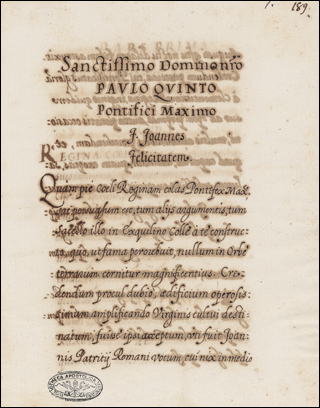 7. 189.
Sanctissimo Dommonro
PAVLO QVINTO
Pontifici Maximo
F. Joannes
Felicitatem.
Quam pie Coeli Reginam colas Pontifex Max.
persuasum est, tum alijs argumentis, tum
sacello illo in Exquilino Colle à te constru-
cto, quo, ut fama percrebuit, nullum in Orbe
terrarum cernitur magnificentius. Cre-
dendum procul dubio, ædificium operosis-
simum amplificando Virginis cultui desti-
natum, fuisse ipsi acceptum, uti fuit Joan-
nis Patritij Romani votum, cui nix in medio